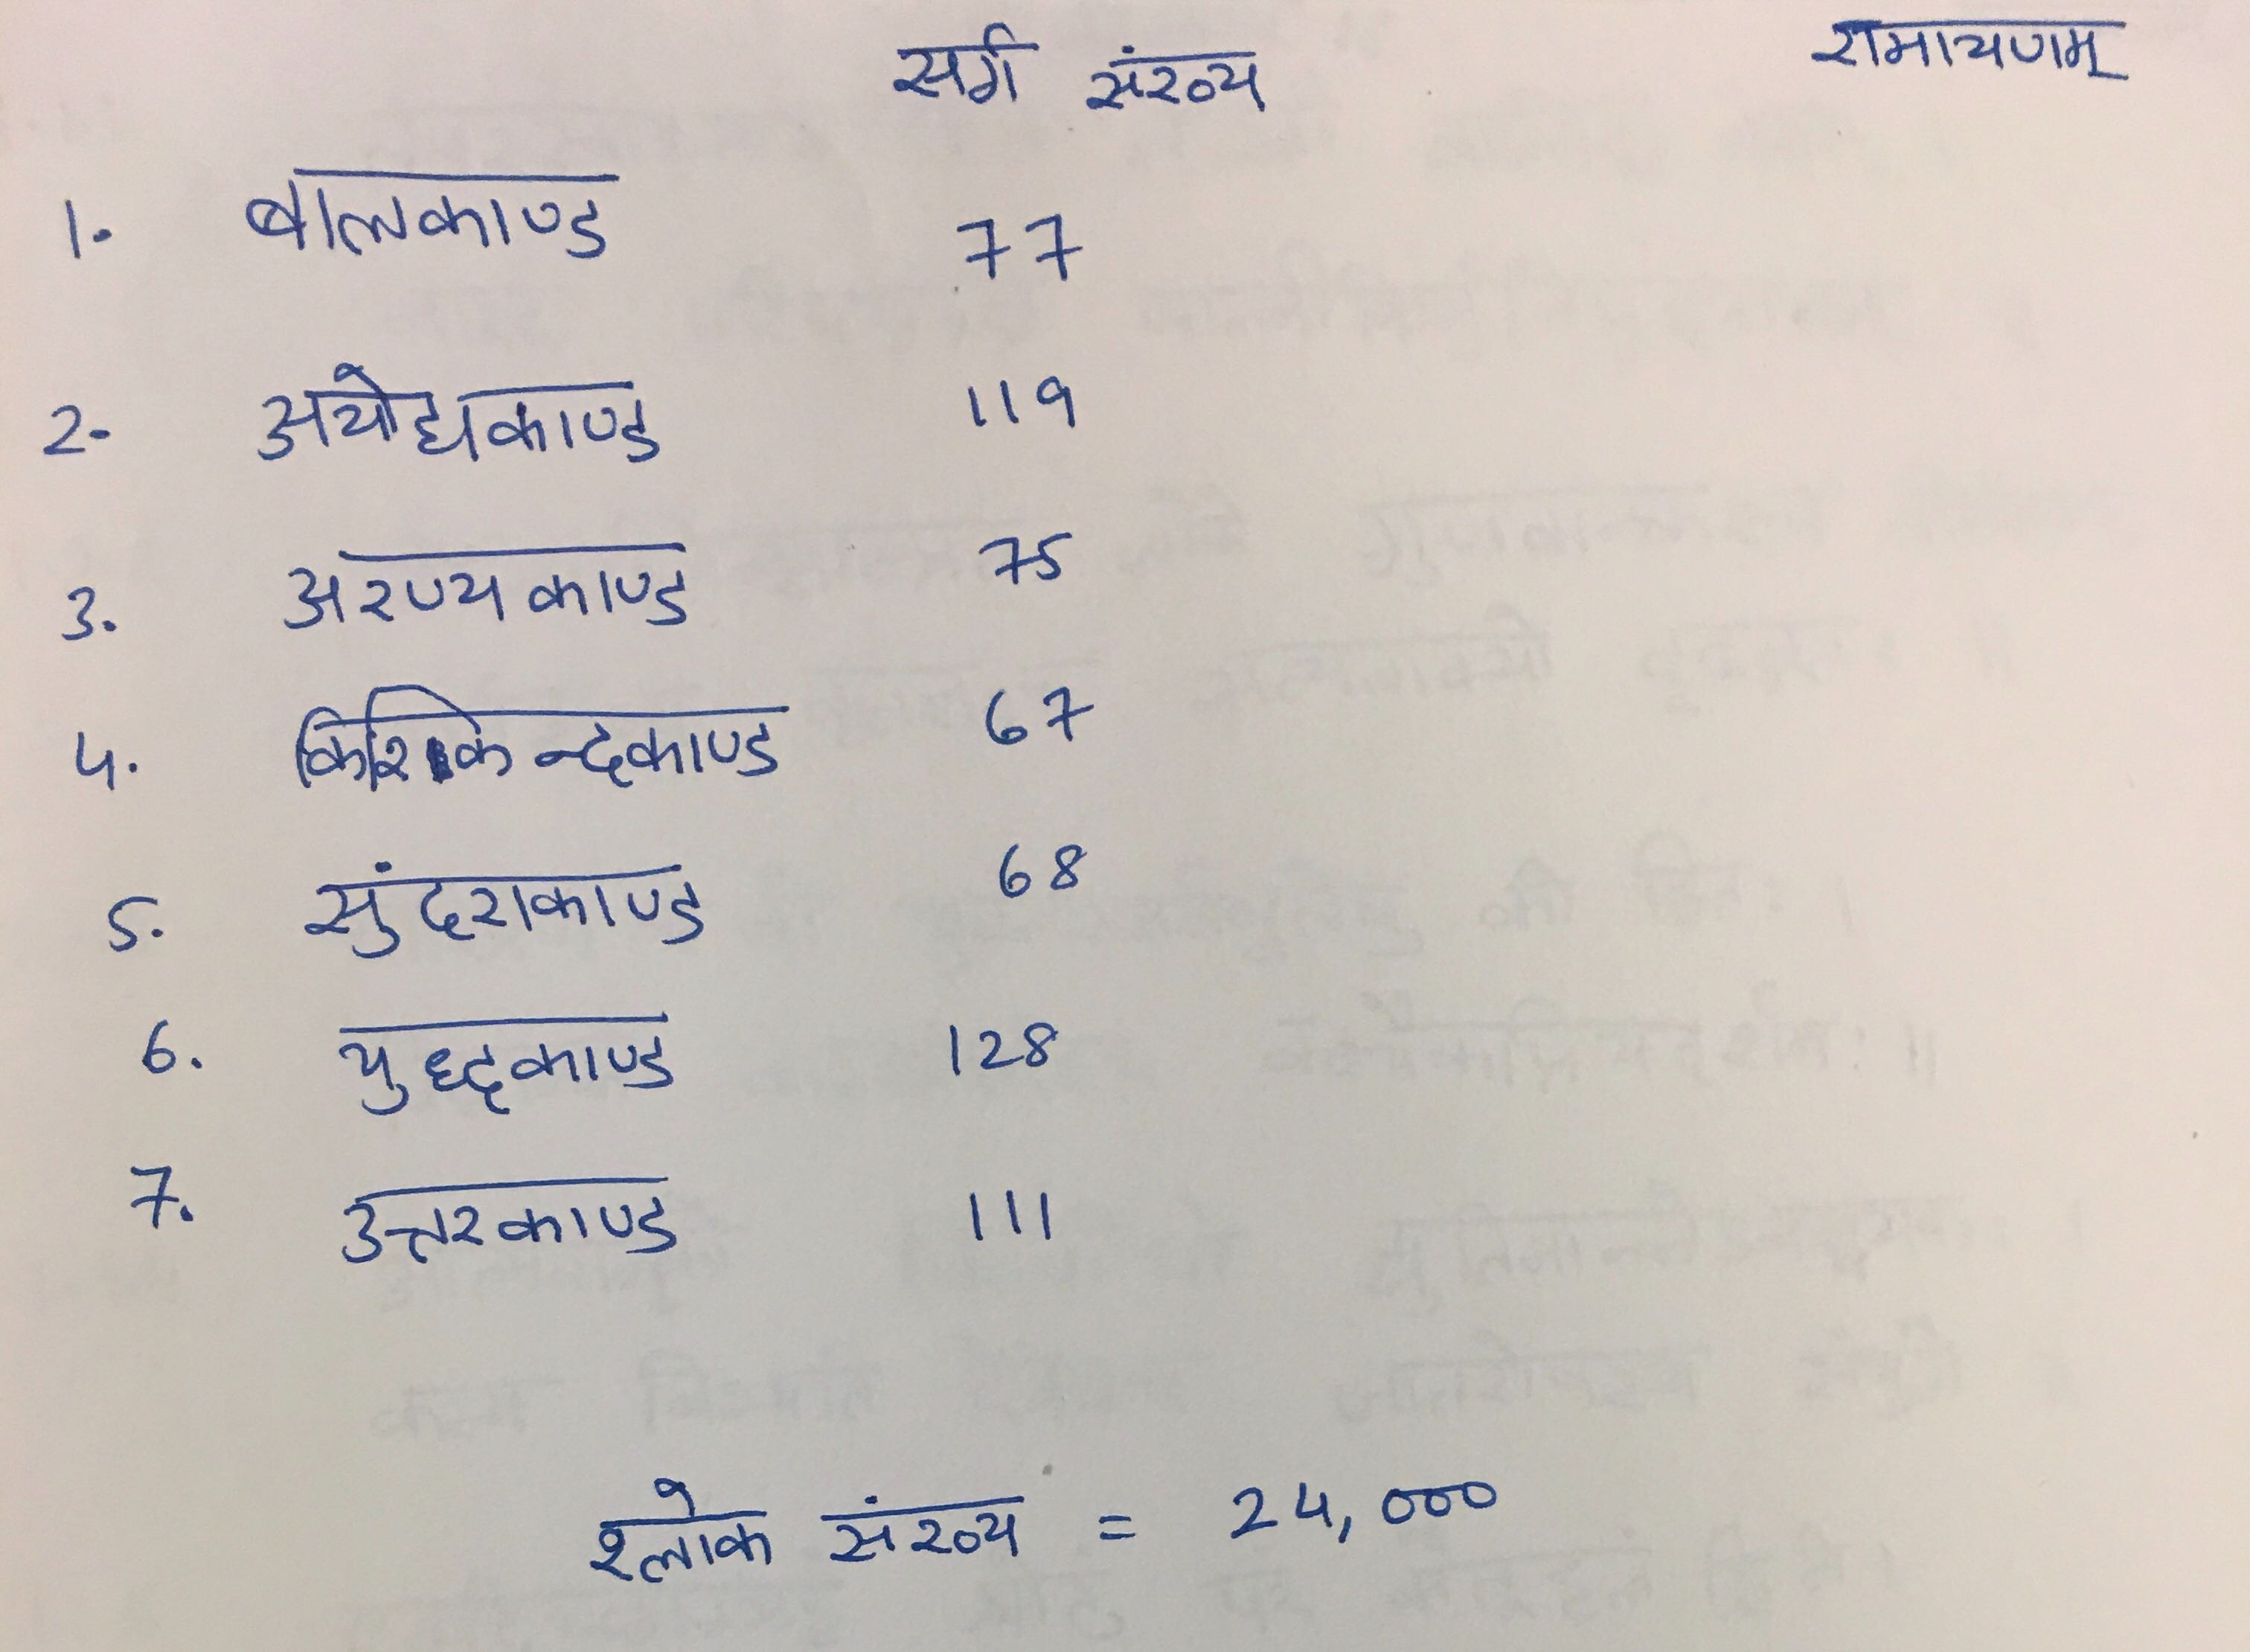 सर्ग संख्य रामायणम्
1. बालकाण्ड 77
2. अयोद्यकाण्ड 119
3. अरण्यकाण्ड 75
4. किशिकन्दकाण्ड 67
5. सुंदराकाण्ड 68
6. युध्दकाण्ड 128
7. उत्तरकाण्ड 111
श्लोक संख्य = 24,000